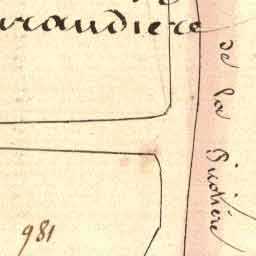 randière
de la Picotière
981